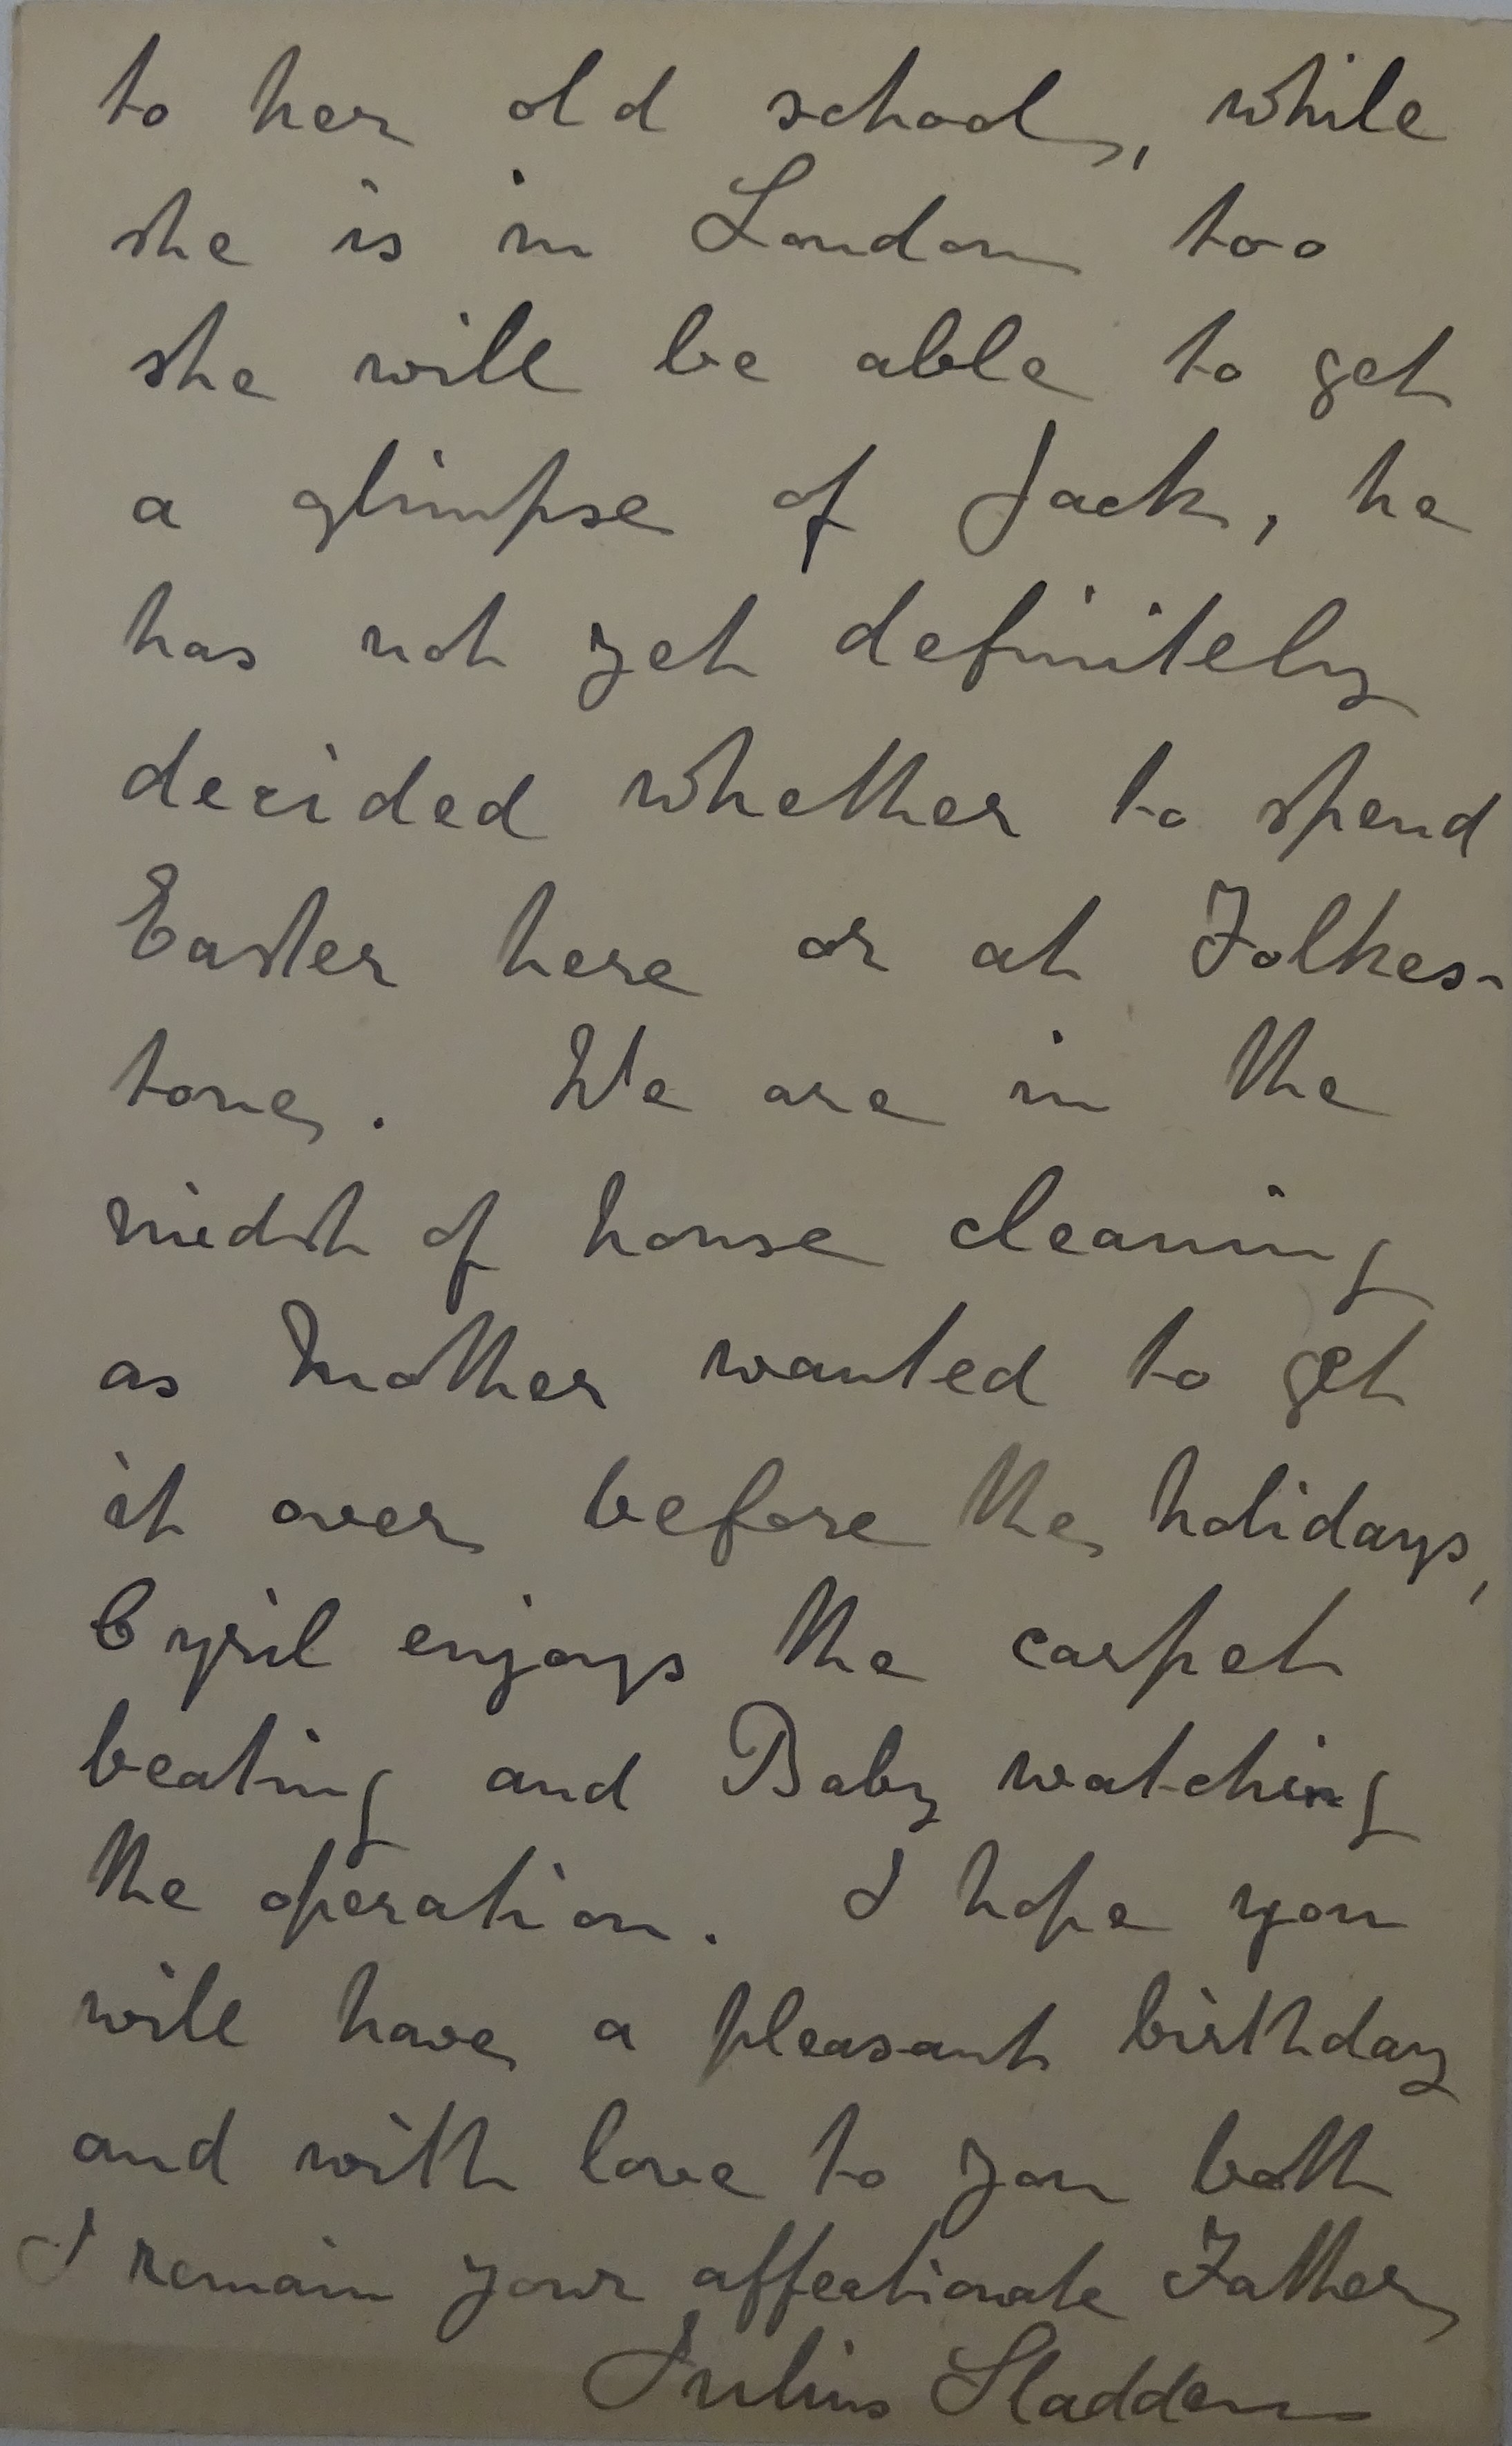 to her old school, while
she is in London too
she will be able to get
a glimpse of Jack, he
has not yet definitely
decided whether to spend
Easter here or at Folkes-
tone. We are in the
midst of house cleaning
as Mother wanted to get
it over before the holidays,
Cyril enjoys the carpet
beating and Baby watching
the operation. I hope you
will have a pleasant birthday
and with love to you both
I remain your affectionate Father
Julius Sladden